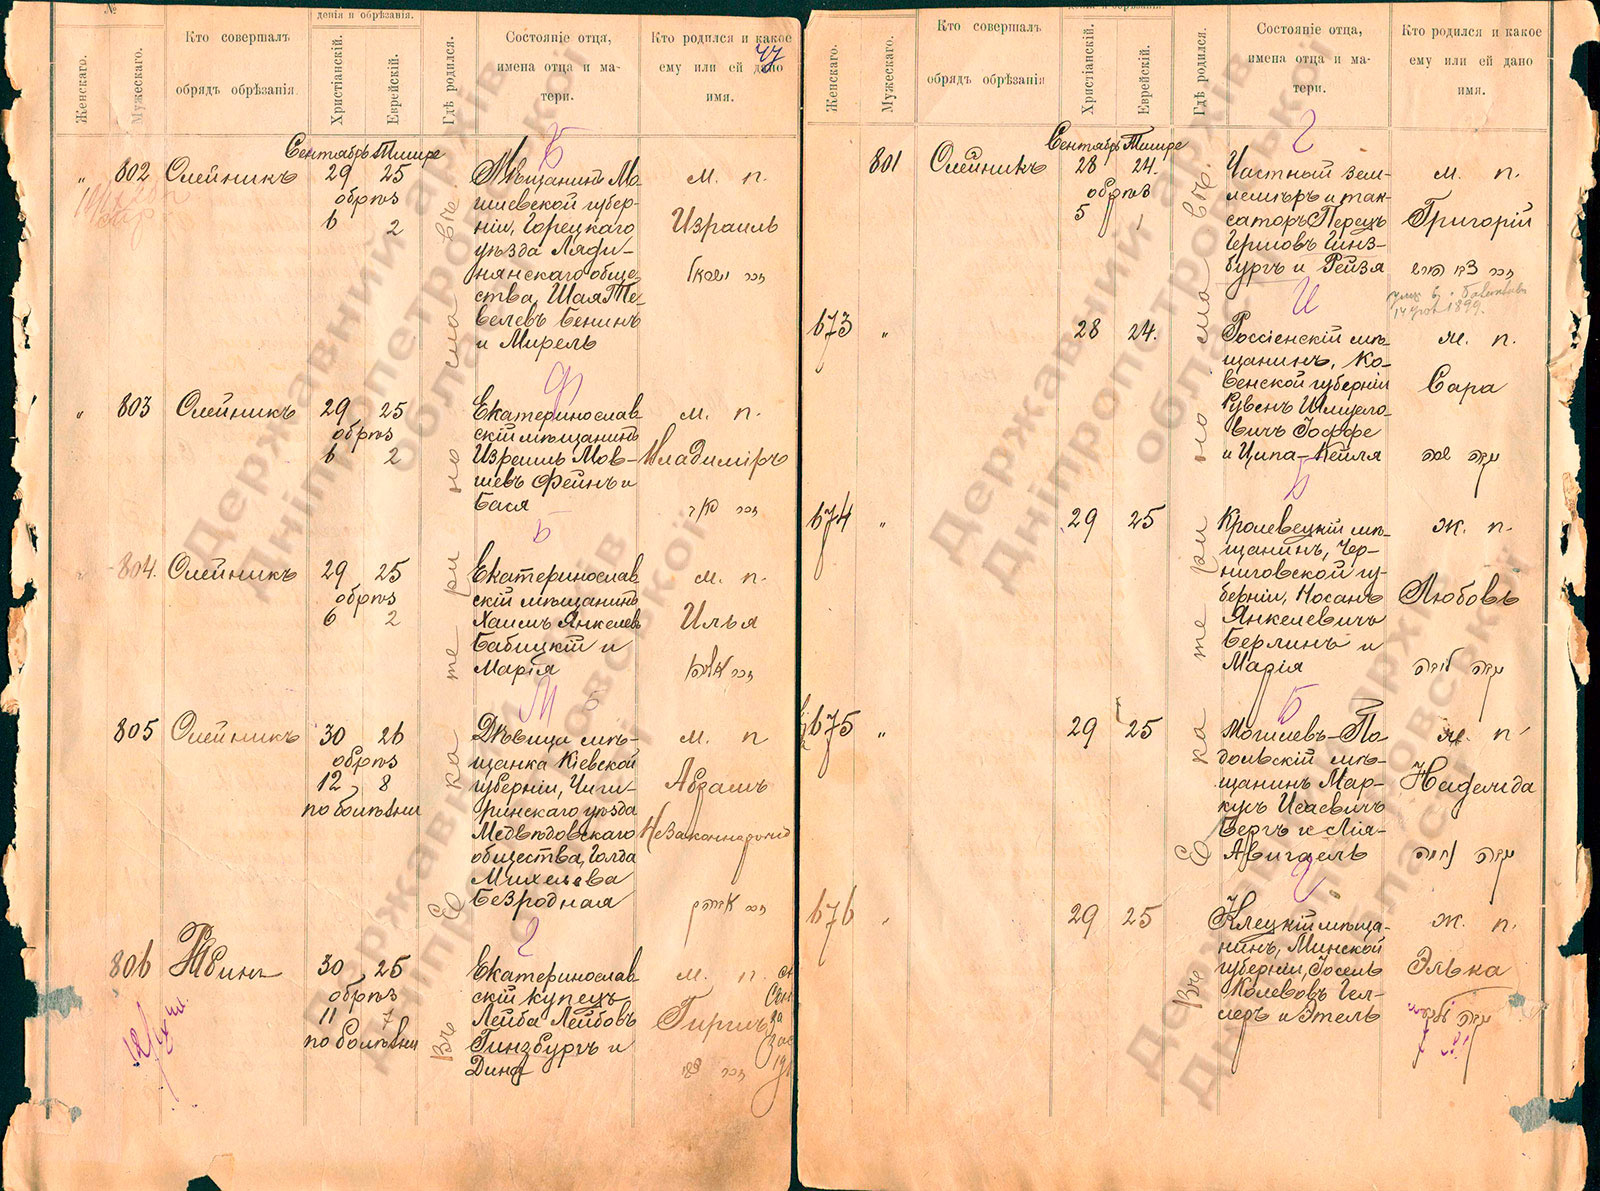 №
Женскаго.
Мужескаго.
Кто совершалъ
обрядъ обрѣзанія.
денія и обрѣзанія.
Христіанскій.
Еврейскій.
Гдѣ родился.
Состояніе отца,
имена отца и ма-
тери.
Кто родился и какое
ему или ей дано
имя.
Сентябрь Тишре
Б
" 802 Олейникъ 29 25
обрѣз
6 2
Мѣщанинъ Мо-
гилевской губер-
ніи, Горецкаго
уѣзда Ляди-
нянскаго обще-
ства, Шая Те-
велевъ Бенинъ
и Мирель
м. п.
Израиль
זכר ישראל
Ф
" 803 Олейникъ 29 25
обрѣз
6 2
Екатеринослав-
скій мѣщанинъ
Израиль Мов-
шевъ Фейнъ и
Бася
м. п.
Владиміръ
זכר
Б
804. Олейникъ 29 25
обрѣз
6 2
Екатеринослав-
скій мѣщанинъ
Хаимъ Янкелевъ
Бабицкій и
Марія
м. п.
Илья
זכר
М Б
805 Олейникъ 30 26
обрѣз
12 8
по болѣзни
Дѣвица мѣ-
щанка Кіевской
губерніи, Чиги-
ринскаго уѣзда
Медвѣдовскаго
общества, Голда
Михелева
Безродная
м. п
Абрамъ
Незаконнорожд
זכר
Г
806 30 25
обрѣз
11 7
по болѣзни
Екатеринослав-
скій купецъ
Лейба Лейбовъ
Гинзбургъ и
Дина
м. п.
Гиршъ
זכר צבי
Въ Екатеринославѣ.
Женскаго.
Мужескаго.
Кто совершалъ
обрядъ обрѣзанія
Христіанскій.
Еврейскій.
Гдѣ родился.
Состояніе отца,
имена отца и ма-
тери.
Кто родился и какое
ему или ей дано
имя.
Сентябрь Тишре
Г
801 Олейникъ 28 24.
обрѣз
5 1
Частный зем-
лемѣръ и так-
саторъ Перецъ
Гершовъ Гинз-
бургъ и Рейзя
м. п.
Григорій
זכר צבי הירש
1899.
И
673 " 28 24.
Россіенскій мѣ-
щанинъ, Ко-
венской губерніи
Рувенъ Шмуело-
вичъ Іоффе
и Ципа-Кейля
ж. п.
Сара
נקבה שרה
Б
674 " 29 25
Кролевецкій мѣ-
щанинъ, Чер-
ниговской гу-
берніи, Носанъ
Янкелевичъ
Берлинъ и
Марія
ж. п.
Любовь
נקבה
Б
675 " 29 25
Могилевъ-По-
дольскій мѣ-
щанинъ Мар-
кусъ Исаевичъ
Бергъ и Лія-
Авигдель
ж. п
Надежда
נקבה
Г
676 " 29 25
Клецкій мѣща-
нинъ, Минской
губерніи, Іосель
Колевовъ Гел-
леръ и Этель
ж. п.
Элька
נקבה
Въ Екатеринославѣ.
Державний архів
Дніпропетровської
області